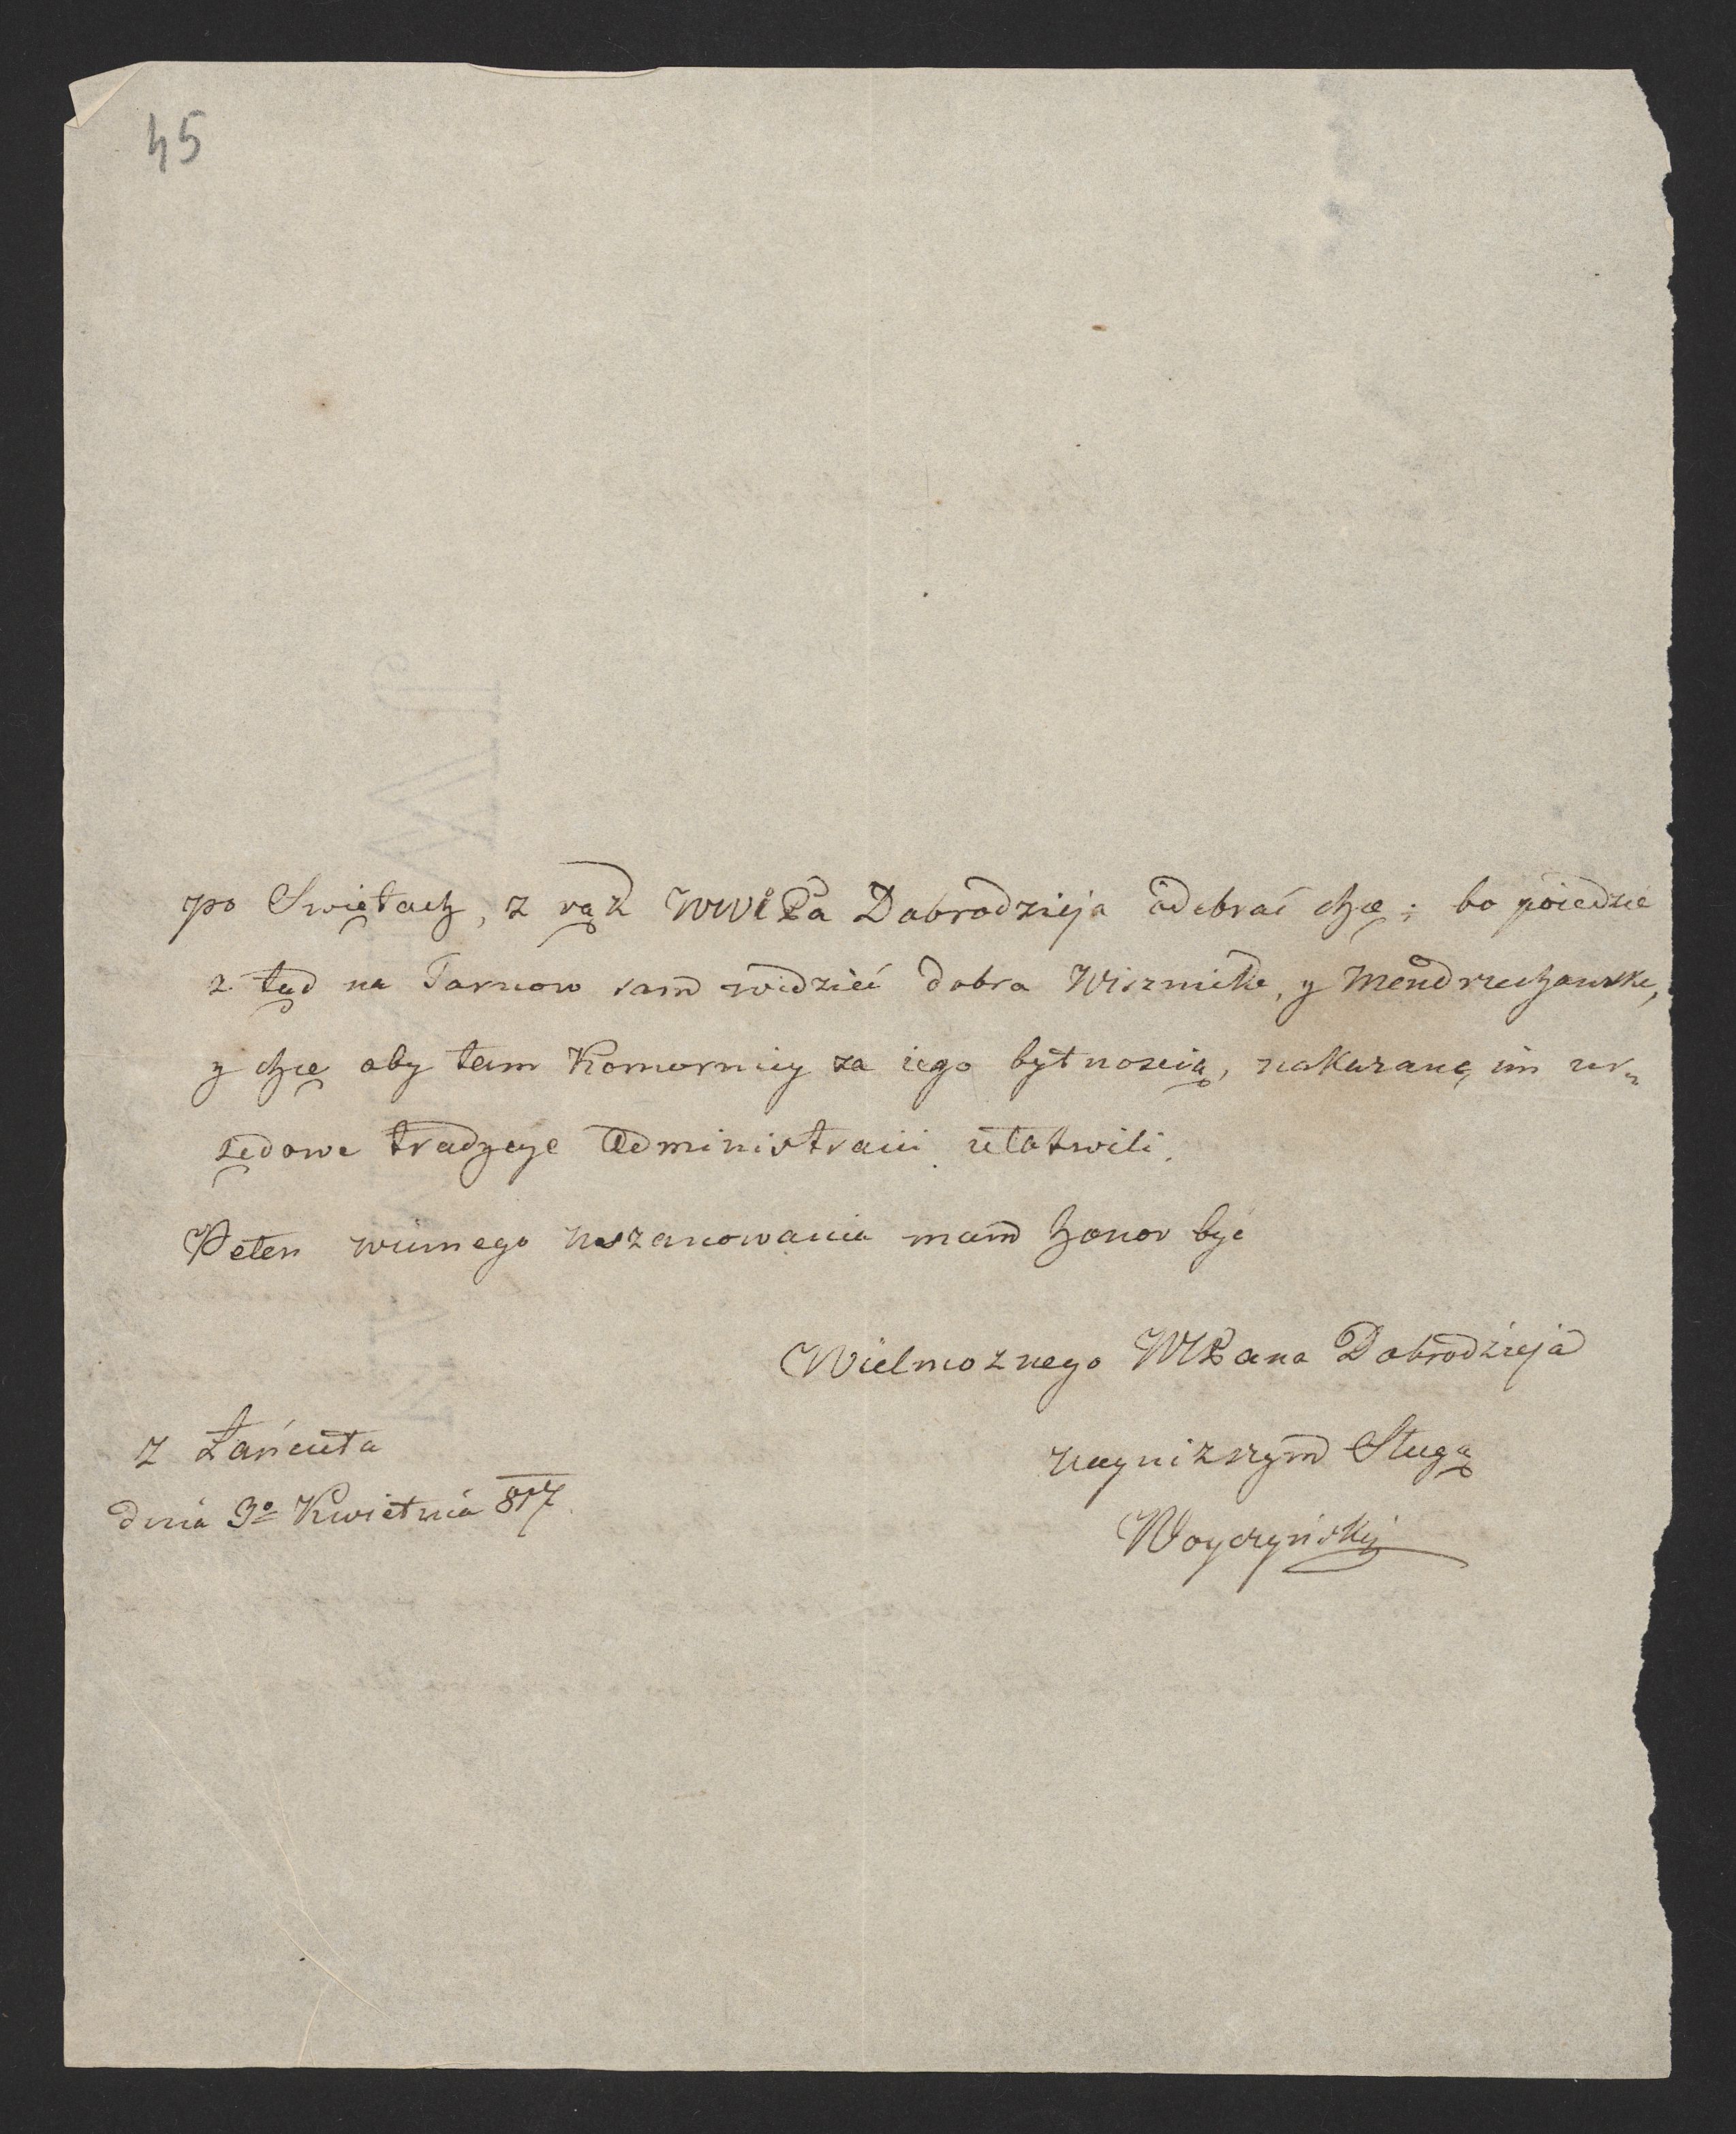 45
po Swiętach, z rąk WWċ Pa Dobrodzieja odebrać chce; bo poiedzie
z tąd na Tarnow sam widzieć dobra Wisznicke, y Mendrzechowske,
y chce aby tam Komornicy za iego bytnoscią, nakazane im urz„
zędowe tradycye Administracii ułatwili.
Pełen winnego uszanowania mam honor być
Wielmoznego WPana Dobrodzieja
z Łańcuta
nayniższym Sługą
dnia 3º Kwietnia 817.
Woyczyński